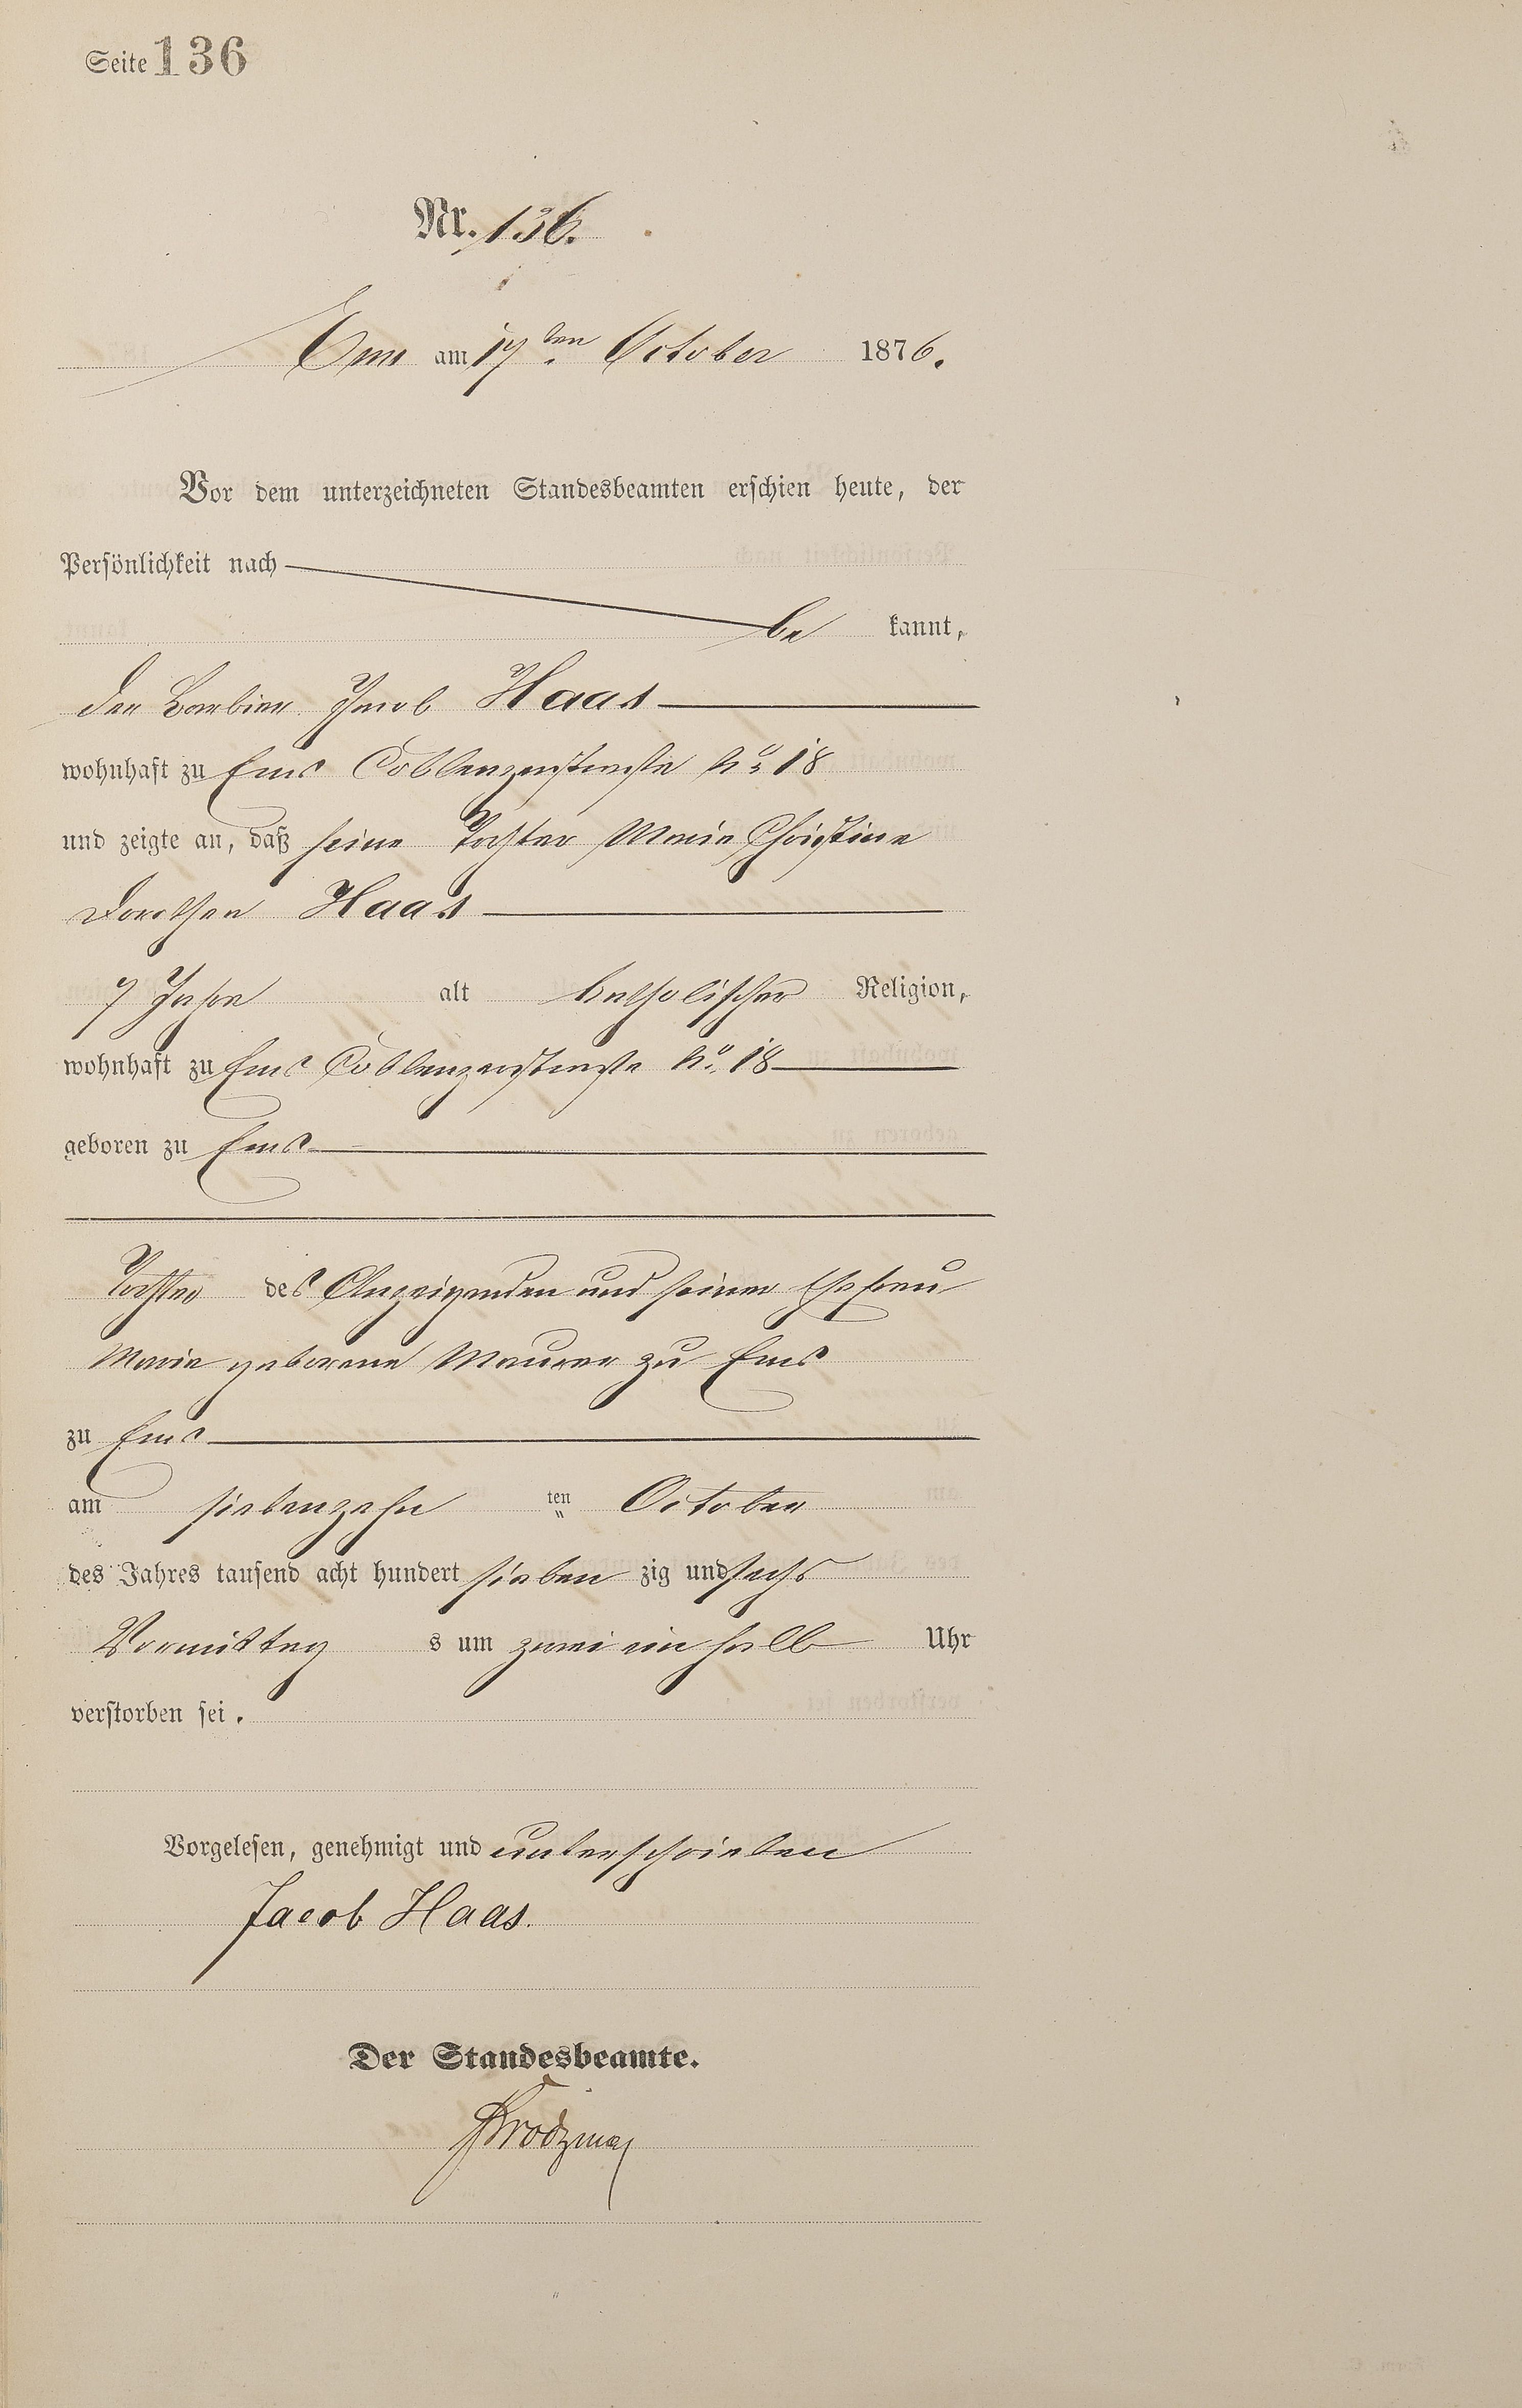 Seite 136
Nr. 136.
Ems am 17ten October 1876.
Vor dem unterzeichneten Standesbeamten erschien heute, der
Persönlichkeit nach
be kannt,
der Barbier Jacob Haas
wohnhaft zu Ems Coblenzerstraße No 18
und zeigte an, daß seine Tochter Marie Christine
Dorothea Haas
7 Jahre alt katholischer Religion,
wohnhaft zu Ems Coblenzerstraße No. 18
geboren zu Ems
Tochter des Anzeigenden und seiner Ehefrau
Marie geborene Maurer zu Ems
zu Ems
am siebenzehn ten October
des Jahres tausend acht hundert sieben zig und sechs
Vormittag s um zwei ein halb Uhr
verstorben sei.
Vorgelesen, genehmigt und unterschrieben
Jacob Haas.
Der Standesbeamte.